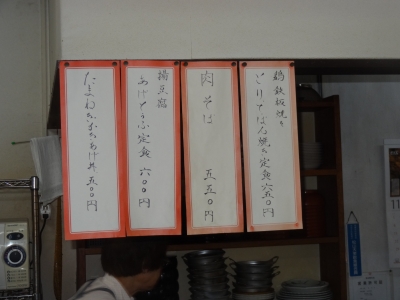 鶏鉄板焼き
とりてっぱん焼き定食 六五〇円
肉そば 五五〇円
揚豆腐
あげとうふ定食 六〇〇円
たまねぎかきあげ丼 五〇〇円
11